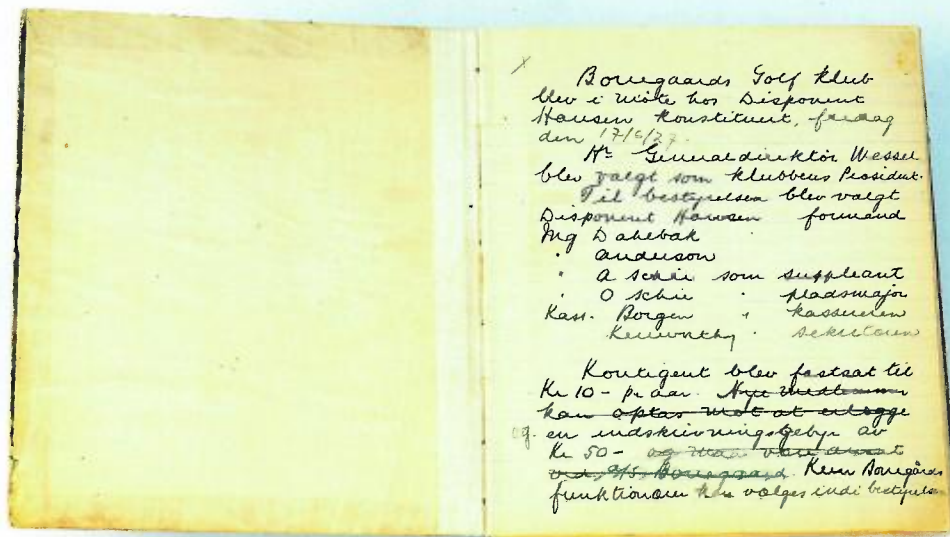 Borregaards Golf Klub
blev i møte hos Disponent
Hansen konstituert, fredag
den 17/6/27.
Hr Generaldirektör Wessel
blev valgt som klubbens Præsident.
Til bestyrelsen blev valgt
Disponent Hansen formand
Ing Dahebak
" Anderson
" A Schie som suppleant
" O Schie " pladsmajor
Kass. Borgen " kassereren
Kenworthy " sekretæren
Kontigent blev fastsat til
Kr 10- pr aar. Nye medlemmer
kan optas mot at erlægge
og en indskrivningsgebyr av
Kr 50- og maa være ansat
ved A/S Borregaard. Kun Borregårds
funktionærer kan vælges ind i bestyrelsen